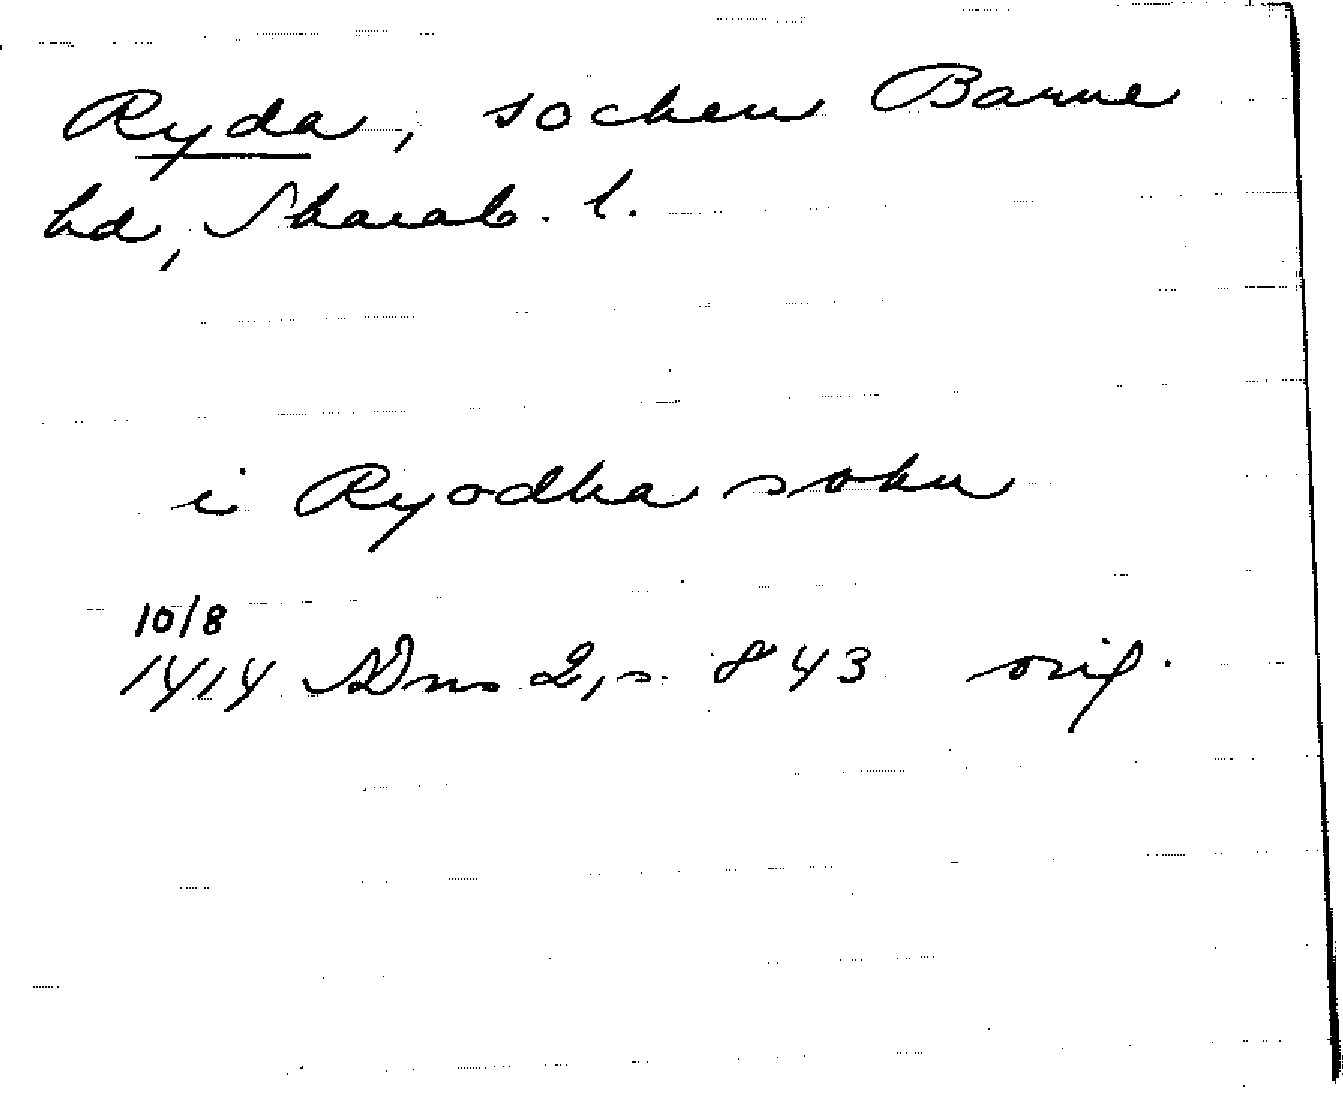 Ryda, socken Barne
hd, Skarab. l.
i Ryodha sokn
10/8
1414 SDns 2, s. 843 orig.